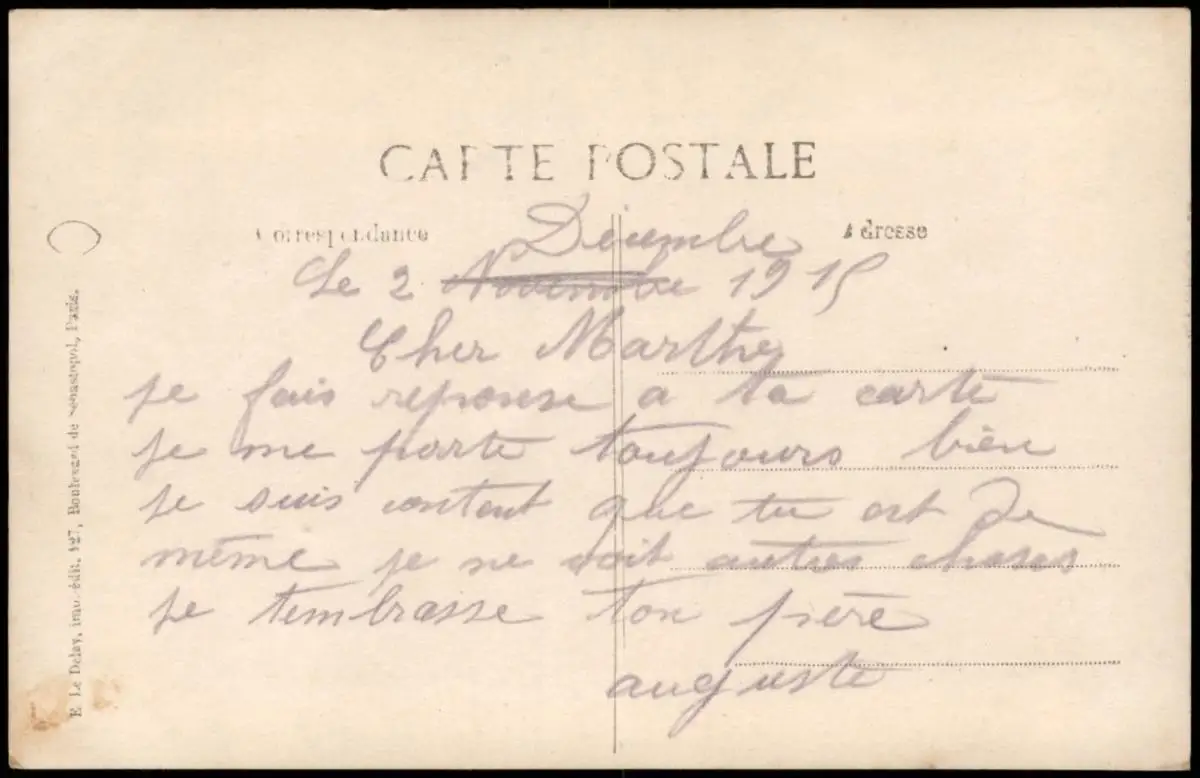 CARTE POSTALE
Correspondance
Adresse
Décembre
Le 2 Novembre 1915
Cher Marthe
je fais reponse a ta carte
je me porte toujours bien
je suis content que tu est de
même je ne voit autres choses
je tembrasse ton père
auguste
E. Le Deley, imp.-édit. 127, Boulevard de Sébastopol, Paris.